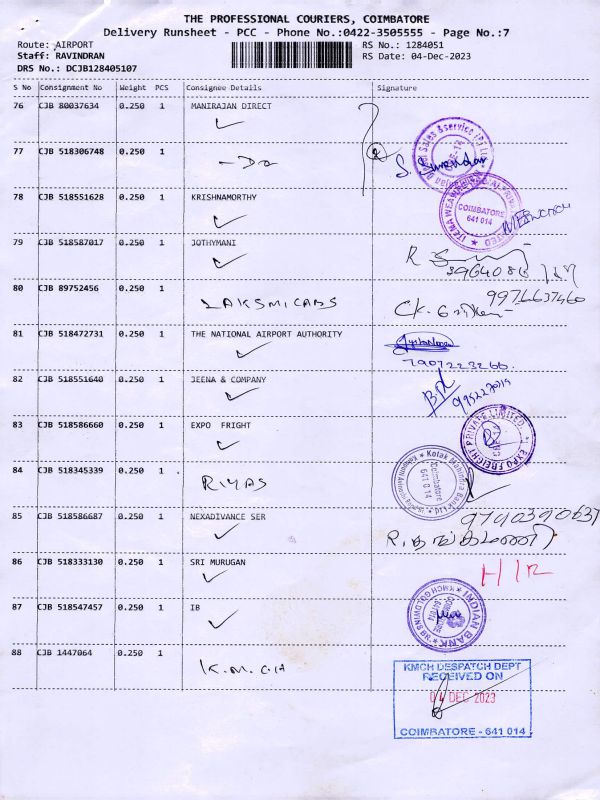 THE PROFESSIONAL COURIERS, COIMBATORE
Delivery Runsheet - PCC - Phone No.:0422-3505555 - Page No.:7
Route: AIRPORT
RS No.: 1284051
Staff: RAVINDRAN
RS Date: 04-Dec-2023
DRS No.: DCJB128405107
S No Consignment No Weight PCS Consignee Details Signature
76 CJB 80037634 0.250 1 MANIRAJAN DIRECT
77 CJB 518306748 0.250 1 - Do
78 CJB 518551628 0.250 1 KRISHNAMORTHY
COIMBATORE
641 014
79 CJB 518587017 0.250 1 JOTHYMANI
80 CJB 89752456 0.250 1 LAKSMICABS
9976637460
81 CJB 518472731 0.250 1 THE NATIONAL AIRPORT AUTHORITY
7907223266
82 CJB 518551640 0.250 1 JEENA & COMPANY
83 CJB 518586660 0.250 1 EXPO FRIGHT
EXPO FREIGHT PRIVATE LIMITED
84 CJB 518345339 0.250 1 RIYAS
Kotak Mahindra Bank Ltd
Coimbatore
641 014
85 CJB 518586687 0.250 1 NEXADIVANCE SER
86 CJB 518333130 0.250 1 SRI MURUGAN
H/R
87 CJB 518547457 0.250 1 IB
INDIAN BANK
KMCH GOLDWINS BR
88 CJB 1447064 0.250 1 K.M.C.H
KMCH DESPATCH DEPT
RECEIVED ON
04 DEC 2023
COIMBATORE - 641 014